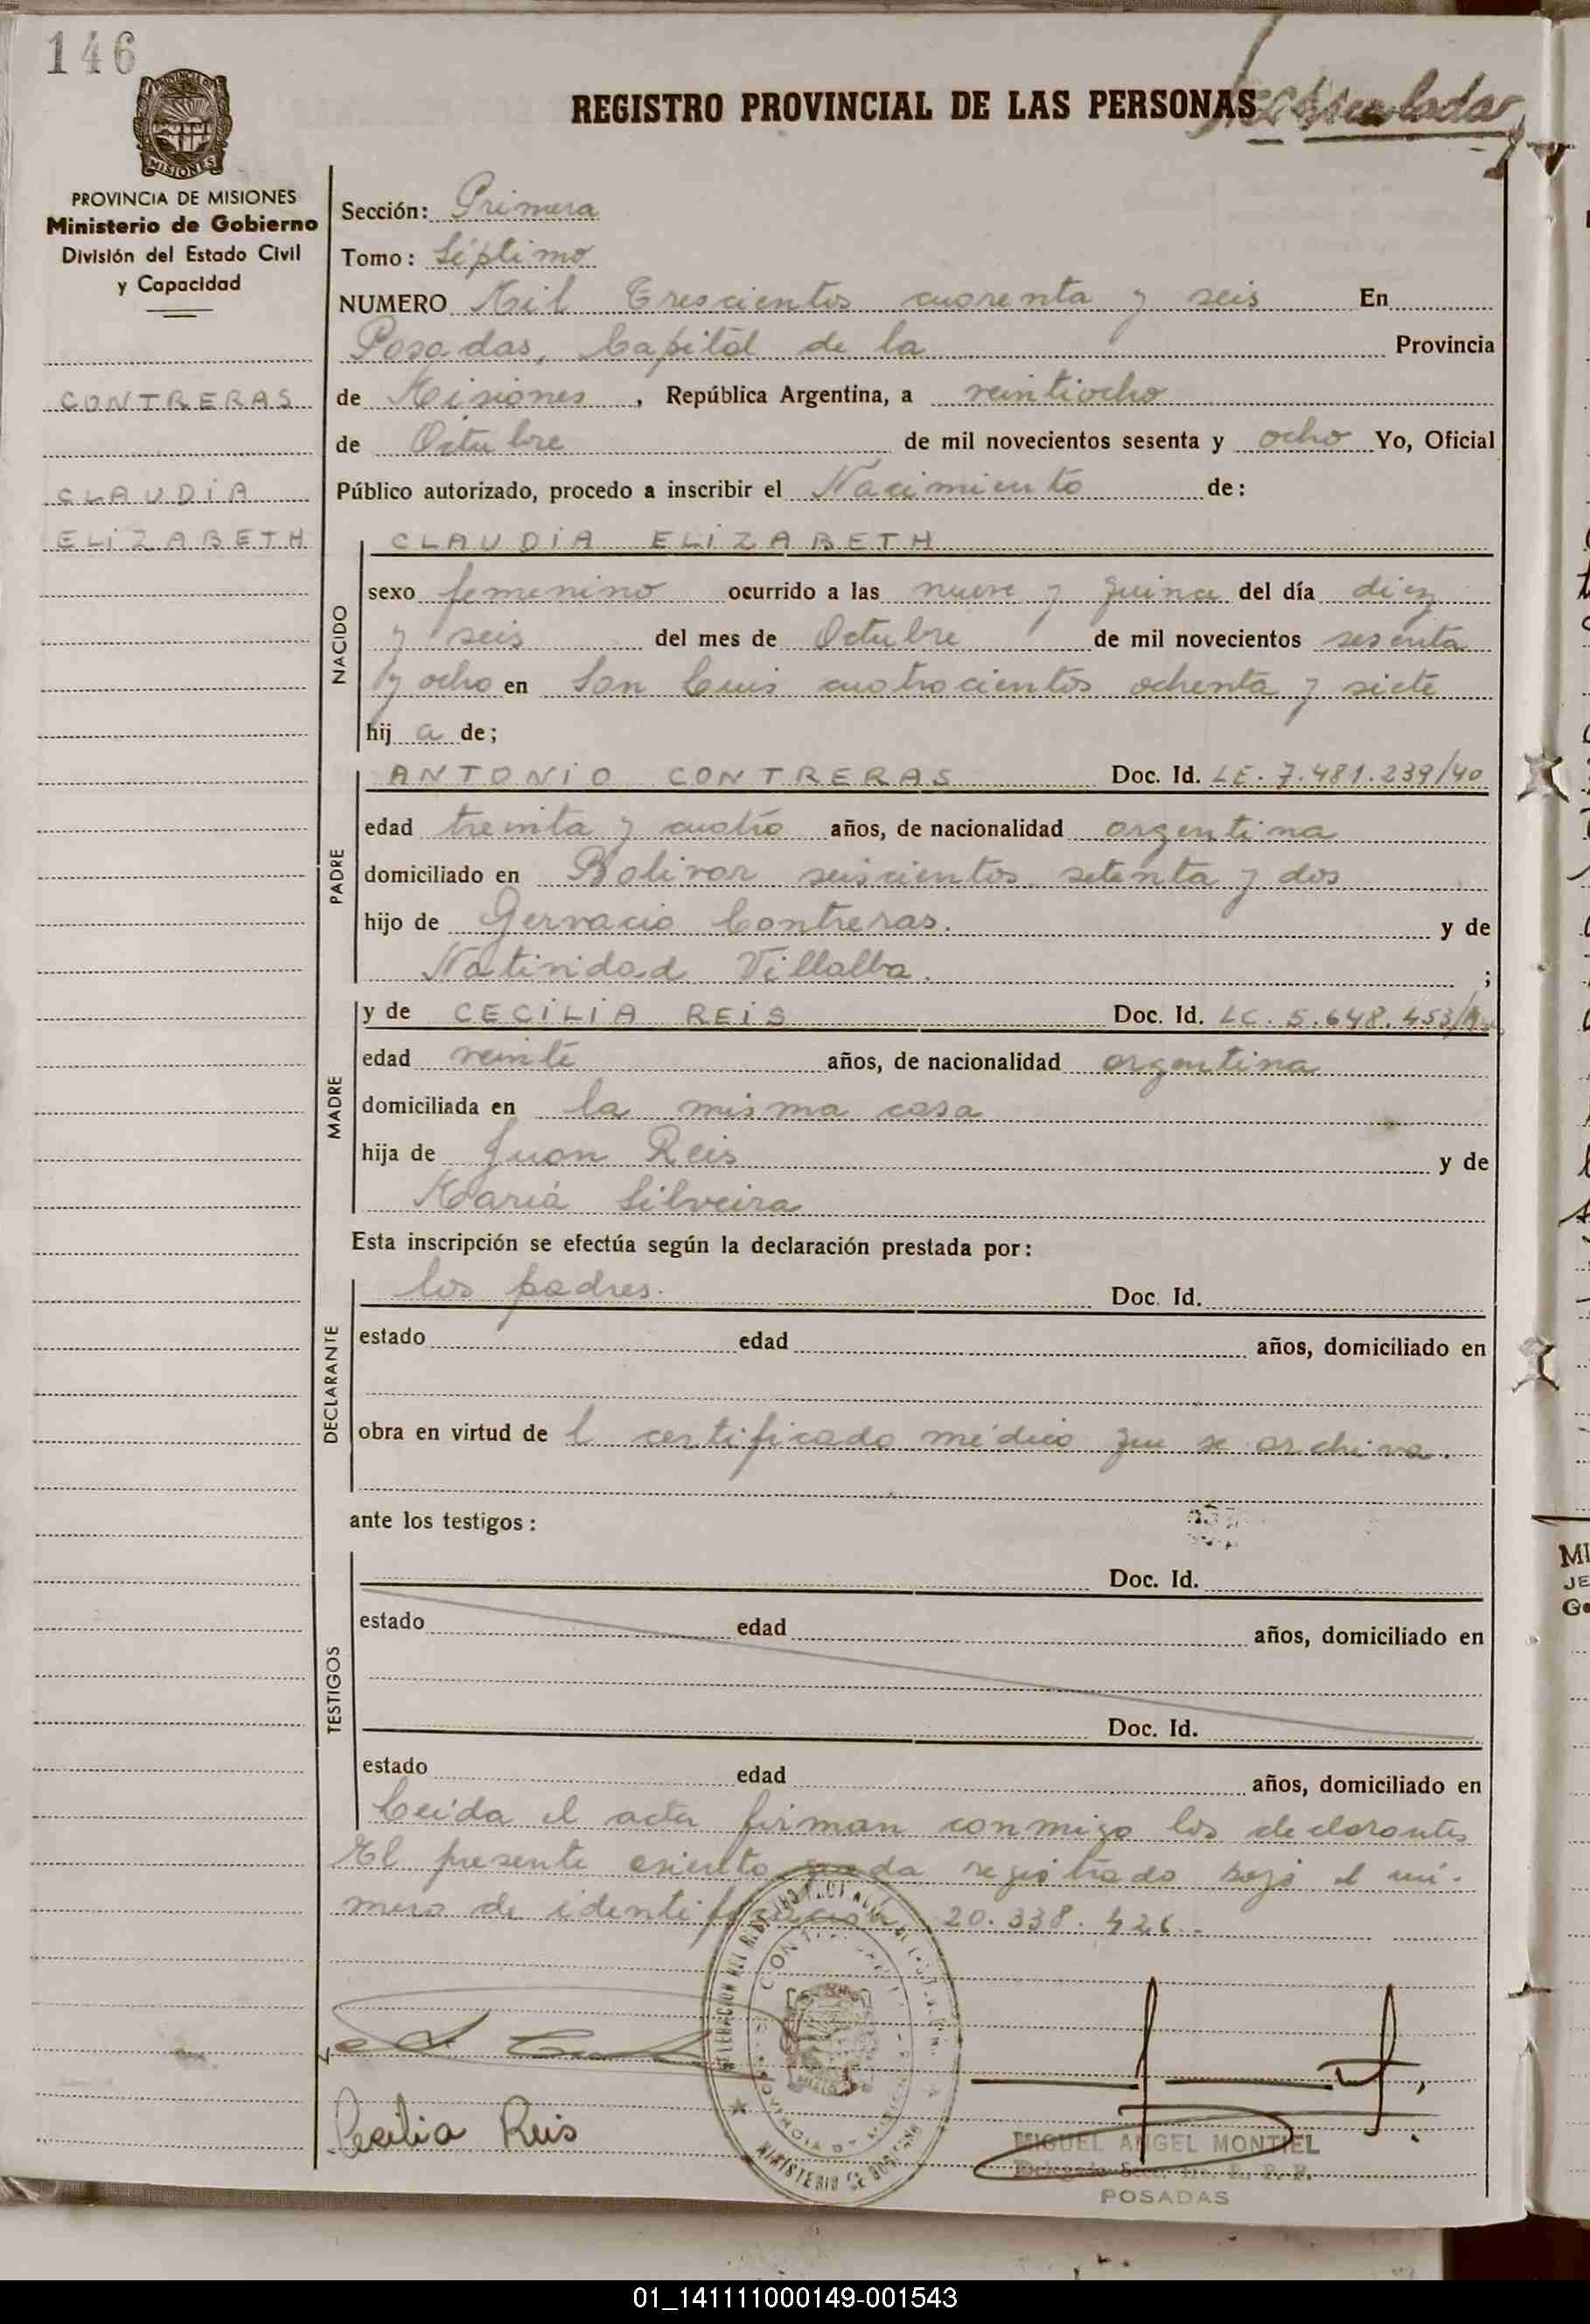 146
REGISTRO PROVINCIAL DE LAS PERSONAS
MISIONES
PROVINCIA DE MISIONES
Ministerio de Gobierno
División del Estado Civil
y Capacidad
CONTRERAS
CLAUDIA
ELIZABETH
Sección: Primera
Tomo: Séptimo
NUMERO Mil Trescientos cuarenta y seis En
Posadas, Capital de la Provincia
de Misiones, República Argentina, a veintiocho
de Octubre de mil novecientos sesenta y ocho Yo, Oficial
Público autorizado, procedo a inscribir el Nacimiento de:
NACIDO
CLAUDIA ELIZABETH
sexo femenino ocurrido a las nueve y quince del día diez
y seis del mes de Octubre de mil novecientos sesenta
y ocho en San Luis cuatrocientos ochenta y siete
hij a de;
PADRE
ANTONIO CONTRERAS Doc. Id. LE. 7.481.239/40
edad treinta y cuatro años, de nacionalidad argentina
domiciliado en Bolivar seiscientos setenta y dos
hijo de Gervacio Contreras. y de
Natividad Villalba. ;
MADRE
y de CECILIA REIS Doc. Id. LC. 5.648.453/
edad veinte años, de nacionalidad argentina
domiciliada en la misma casa
hija de Juan Reis y de
Mariá Silveira
Esta inscripción se efectúa según la declaración prestada por:
DECLARANTE
los padres. Doc. Id.
estado edad años, domiciliado en
obra en virtud de l certificado médico que se archiva.
ante los testigos:
TESTIGOS
Doc. Id.
estado edad años, domiciliado en
Doc. Id.
estado edad años, domiciliado en
Leida el acta firman conmigo los declarantes
El presente asiento queda registrado bajo el nú-
mero de identificación 20.338.426.
Cecilia Reis
MINISTERIO DE GOBIERNO
MIGUEL ANGEL MONTIEL
POSADAS
01_141111000149-001543